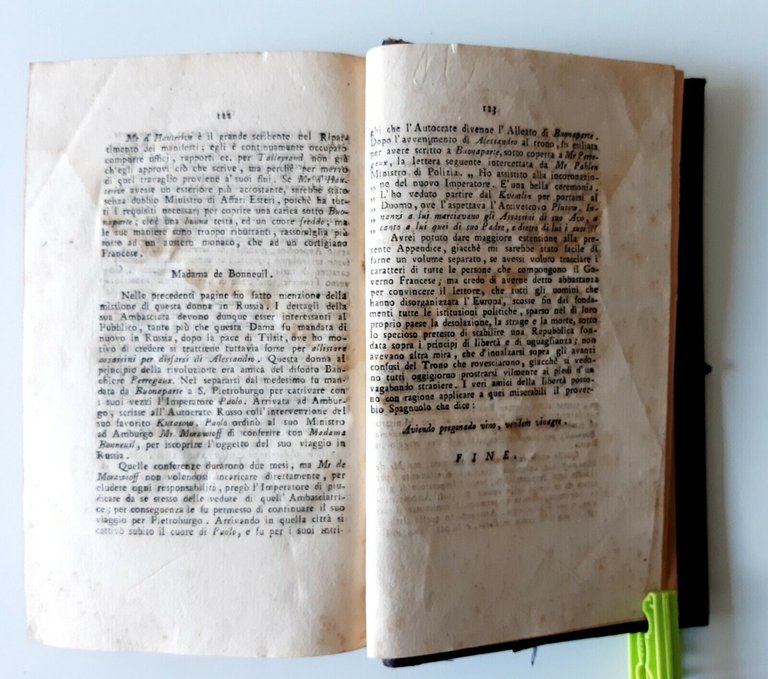 122
Mr d'Hauterive è il grande scribente nel Ripar-
timento dei manifesti; egli è continuamente occupato
comporre offici, rapporti ec. per Talleyrand non già
ch'egli approvi ciò che scrive, ma perchè per mezzo
di quel travaglio proviene a' suoi fini. Se Mr d'Hau-
terive avesse un esteriore più accostante, sarebbe stato
senza dubbio Ministro di Affari Esteri, poichè ha tut-
ti i requisiti necessarj per coprire una carica sotto Buo-
naparte, cioè una buona testa, ed un cuore freddo; ma
le sue maniere sono troppo ributtanti, rassomiglia più
tosto ad un austero monaco, che ad un cortigiano
Francese.
Madama de Bonneuil.
Nelle precedenti pagine ho fatto menzione della
missione di questa donna in Russia. I dettagli della
sua Ambasciata devono dunque esser interessanti al
Pubblico, tanto più che questa Dama fu mandata di
nuovo in Russia, dopo la pace di Tilsit, ove ho mo-
tivo di credere si trattiene tuttavia forse per allistare
assassini per disfarsi di Alessandro. Questa donna al
principio della rivoluzione era amica del difonto Ban-
chiere Perregaux. Nel separarsi dal medesimo fu man-
data da Buonaparte a S. Pietroburgo per cattivare con
i suoi vezzi l'Imperatore Paolo. Arrivata ad Ambur-
go, scrisse all'Autocrate Russo coll'intervenzione del
suo favorito Kutasow. Paolo ordinò al suo Ministro
ad Amburgo Mr Morawioff di conferire con Madama
Bonneuil, per iscoprire l'oggetto del suo viaggio in
Russia.
Quelle conferenze durarono due mesi, ma Mr de
Morawioff non volendosi incaricare direttamente, per
eludere ogni responsabilità, pregò l'Imperatore di giu-
dicare da se stesso delle vedute di quell'Ambasciatri-
ce; per conseguenza le fu permesso di continuare il suo
viaggio per Pietroburgo. Arrivando in quella città si
cattivò subito il cuore di Paolo, e fu per i suoi intri-
123
ghi che l'Autocrate divenne l'Alleato di Buonaparte.
Dopo l'avvenimento di Alessandro al trono, fu esiliata
per avere scritto a Buonaparte, sotto coperta a Mr Perre-
gaux, la lettera seguente intercettata da Mr Pahlen
Ministro di Polizia. „ Ho assistito alla incoronazio-
„ ne del nuovo Imperatore. E' una bella ceremonia.
„ L'ho veduto partire dal Kremlin per portarsi al
„ Duomo, ove l'aspettava l'Arcivescovo Platon, In-
„ nanzi a lui marciavano gli Assassini di suo Avo, a
„ canto a lui quei di suo Padre, e dietro di lui i suoi !!!
Avrei potuto dare maggiore estensione alla pre-
sente Appendice, giacchè mi sarebbe stato facile di
farne un volume separato, se avessi voluto tracciare i
caratteri di tutte le persone che compongono il Go-
verno Francese; ma credo di averne detto abbastanza
per convincere il lettore, che tutti gli uomini, che
hanno disorganizzata l'Europa, scosse fin dai fonda-
menti tutte le istituzioni politiche, sparso nel di loro
proprio paese la desolazione, la strage e la morte, sotto
lo specioso pretesto di stabilire una Repubblica fon-
data sopra i principj di libertà e di uguaglianza; non
avevano altra mira, che d'innalzarsi sopra gli avanzi
confusi del Trono che rovesciarono, giacchè si vedo-
no tutti oggigiorno prostrarsi vilmente ai piedi d'un
vagabondo straniere. I veri amici della libertà posso-
no con ragione applicare a quei miserabili il prover-
bio Spagnuolo che dice:
Aviendo pregonado vino, venden vinagre.
FINE.